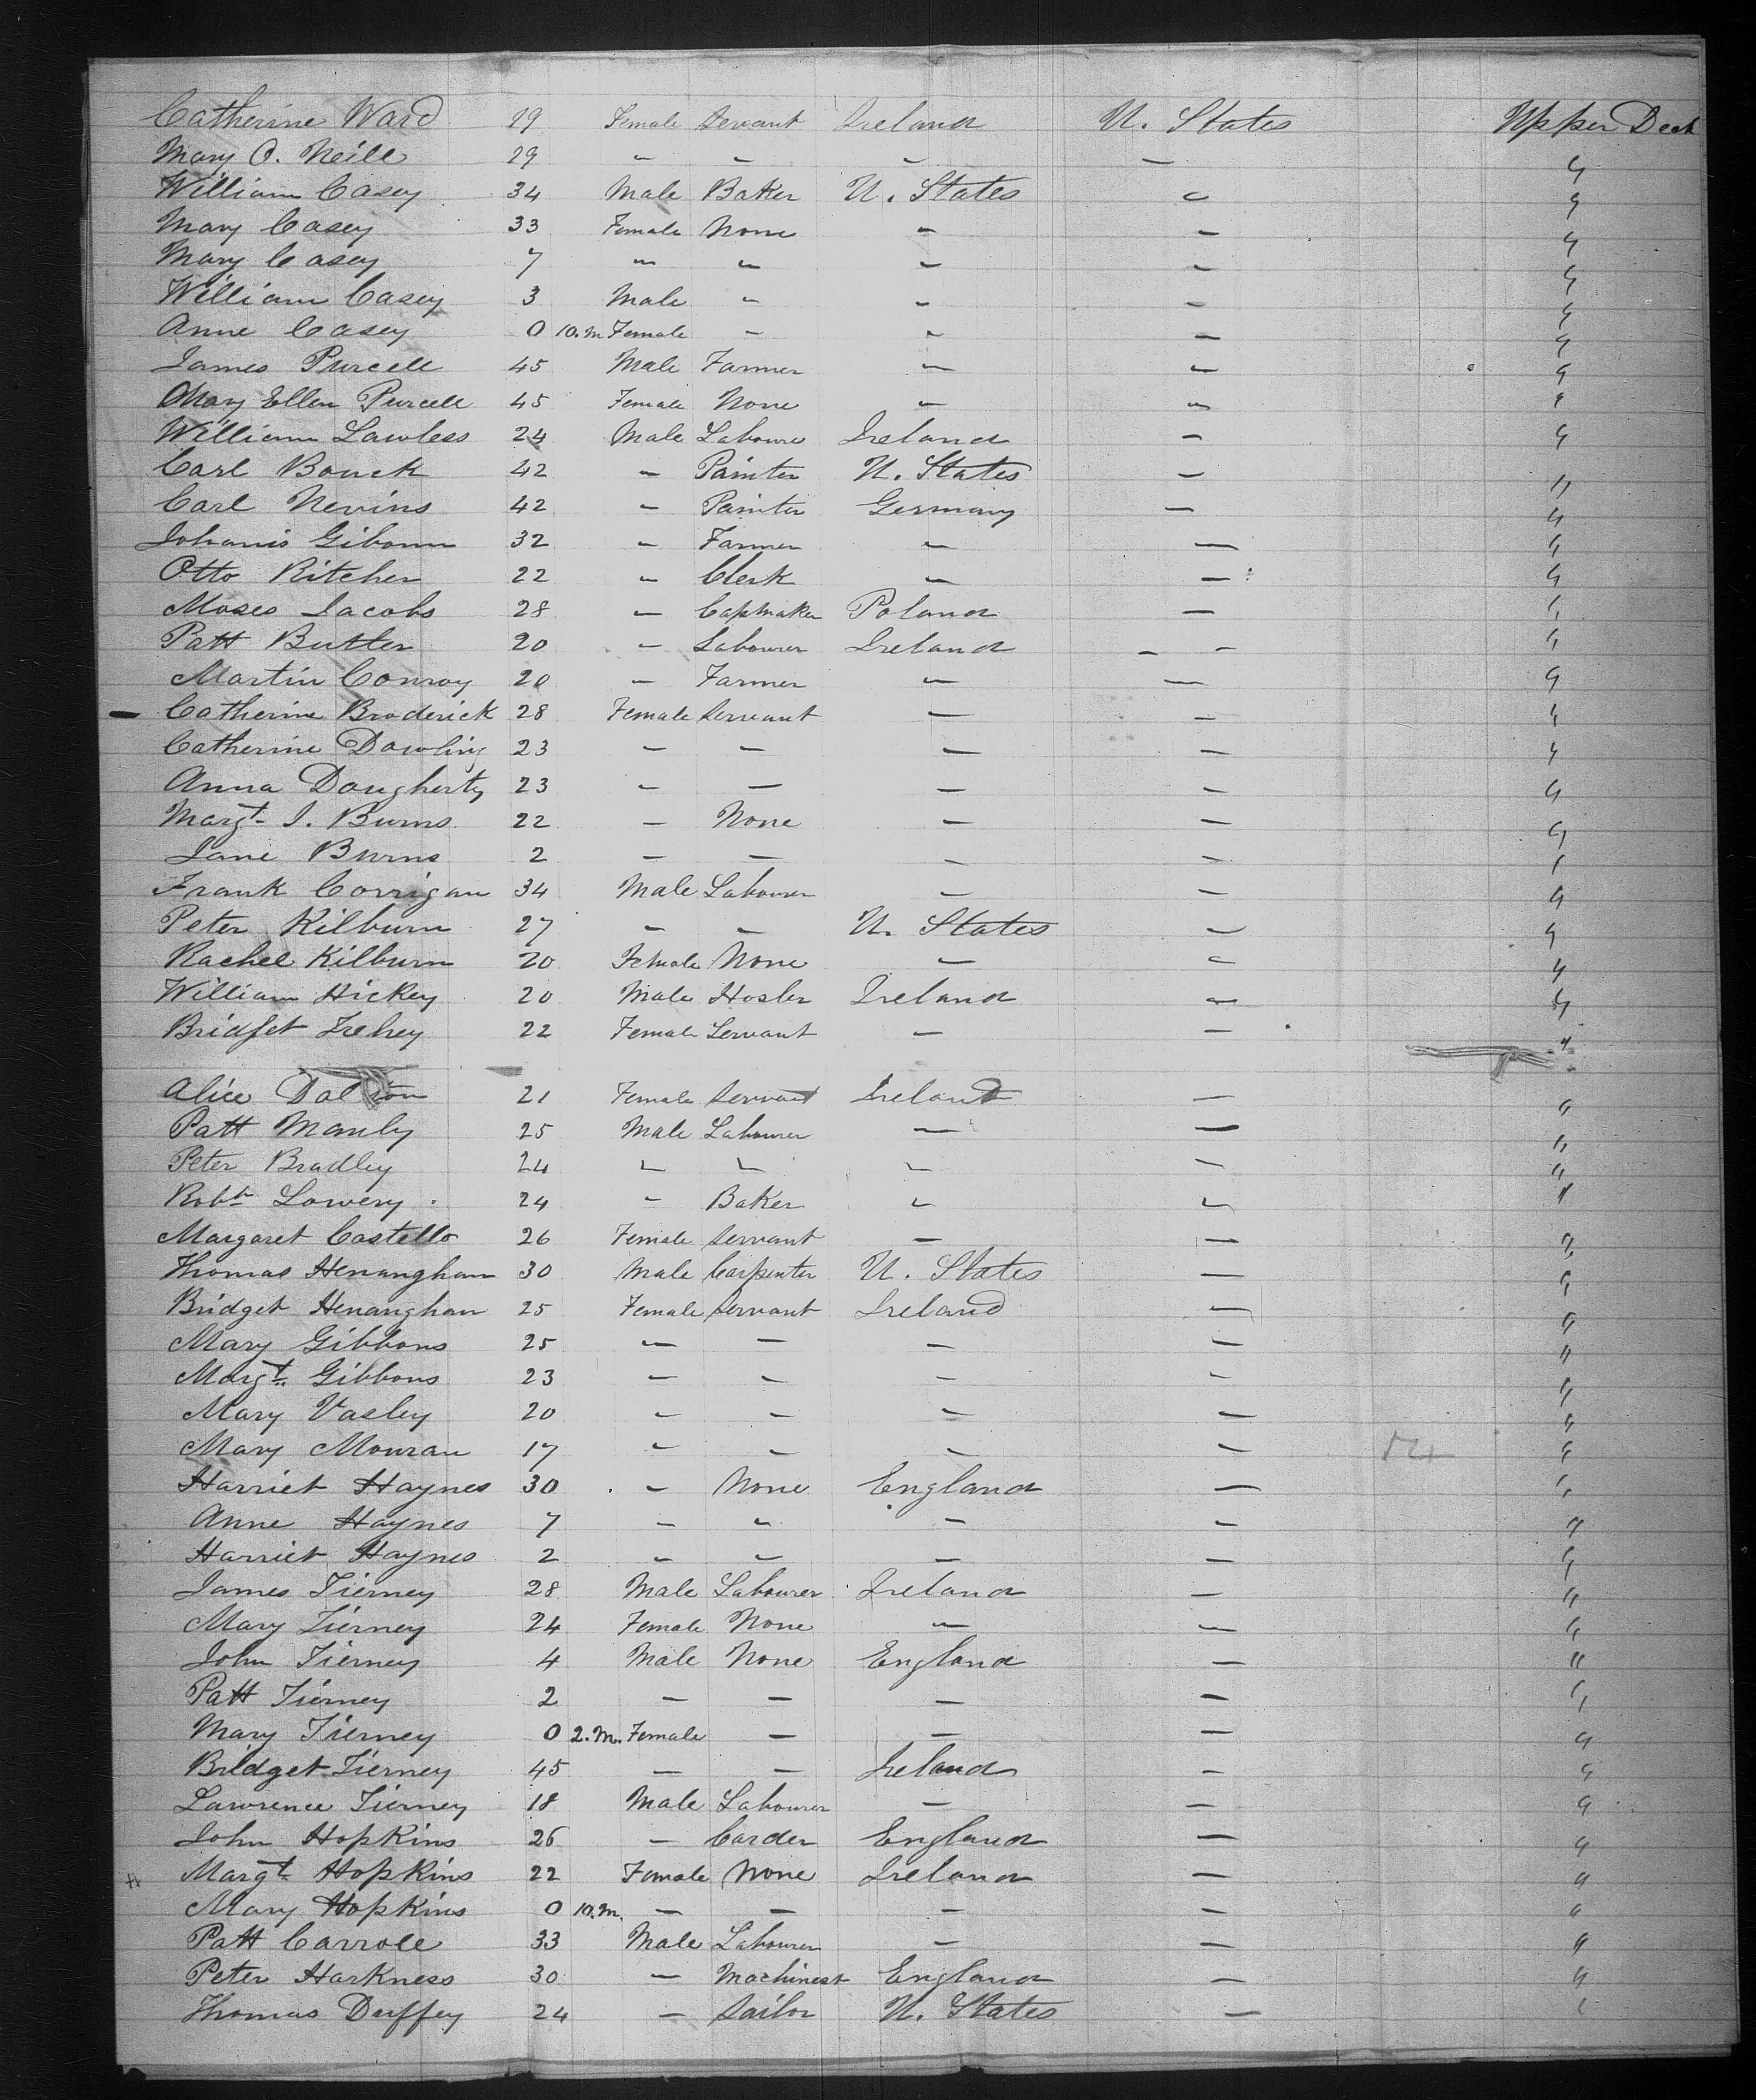 Catherine Ward 29 Female Servant Ireland U. States Upper Deck
Mary O. Neill 29 " " " — "
William Casey 34 Male Baker U. States — "
Mary Casey 33 Female None " — "
Mary Casey 7 " " " — "
William Casey 3 Male " " — "
Anne Casey 0 10.m Female — " — "
James Purcell 45 Male Farmer — — "
Mary Ellen Purcell 45 Female None — — "
William Lawless 24 Male Laboure Ireland — "
Carl Bouck 42 — Painter U. States — "
Carl Nevins 42 — Painter Germany — "
Johanis Gibonn 32 — Farmer — — "
Otto Ritcher 22 — Clerk — — "
Moses Jacobs 28 — Capmaker Poland — "
Patt Butler 20 — Labourer Ireland — — "
Martin Conroy 20 — Farmer — — "
— Catherine Broderick 28 Female Servant — — "
Catherine Dowling 23 — — — — "
Anna Dougherty 23 — — — — "
Margt. J. Burns 22 — None — — "
Jane Burns 2 — — — — "
Frank Corrigan 34 Male Labourer — — "
Peter Kilburn 27 — — U. States — "
Rachel Kilburn 20 Female None — — "
William Hickey 20 Male Hosler Ireland — "
Bridget Trehey 22 Female Servant — — "
Alice Dalton 21 Female Servant Ireland — "
Patt Manly 25 Male Labourer — — "
Peter Bradley 24 " " " — "
Robt Lowery 24 " Baker " " "
Margaret Castello 26 Female Servant — — "
Thomas Henanghan 30 Male Carpenter U. States — "
Bridget Henanghan 25 Female Servant Ireland — "
Mary Gibbons 25 — — — — "
Margt. Gibbons 23 — — — — "
Mary Vasley 20 — — — — "
Mary Mouran 17 — — — — "
Harriet Haynes 30 — None England — "
Anne Haynes 7 — " — — "
Harriet Haynes 2 — — — — "
James Tierney 28 Male Labourer Ireland — "
Mary Tierney 24 Female None — — "
John Tierney 4 Male None England — "
Patt Tierney 2 — — — — "
Mary Tierney 0 2.m. Female — — — "
Bridget Tierney 45 — — Ireland — "
Lawrence Tierney 18 Male Labourer — — "
John Hopkins 26 — Carder England — "
Margt. Hopkins 22 Female None Ireland — "
Mary Hopkins 0 10.m. — — — — "
Patt Carroll 33 Male Labourer — — "
Peter Harkness 30 — Machinest England — "
Thomas Duffey 24 — Sailor U. States — "